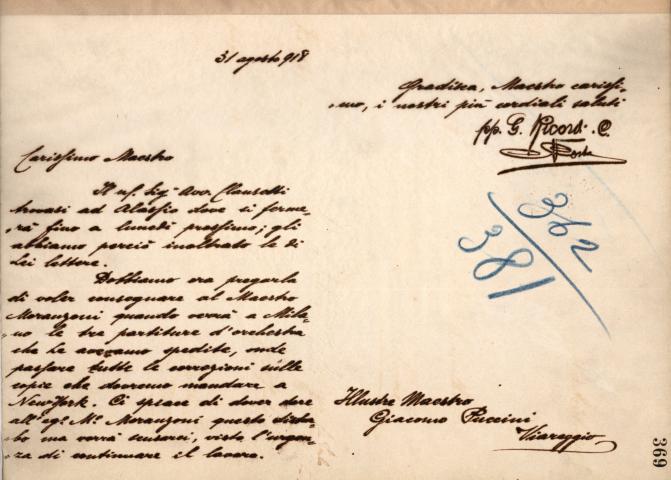 31 agosto 918
Carissimo Maestro
Il ns/ Sigr Avv. Clausetti
trovasi ad Alassio dove si ferme-
rà fino a lunedì prossimo; gli
abbiamo perciò inoltrato le di
Lei lettere.
Dobbiamo ora pregarla
di voler consegnare al Maestro
Moranzoni quando verrà a Mila-
no le tre partiture d'orchestra
che Le avevamo spedite, onde
passare tutte le correzioni sulle
copie che dovremo mandare a
New York. Ci spiace di dover dare
all'egr. Mo Moranzoni questo distur-
bo ma vorrà scusarci, vista l'urgen-
za di continuare il lavoro.
Gradisca, Maestro carissi-
mo, i nostri più cordiali saluti
pp. G. Ricordi. C.
362
381
Illustre Maestro
Giacomo Puccini
Viareggio
369